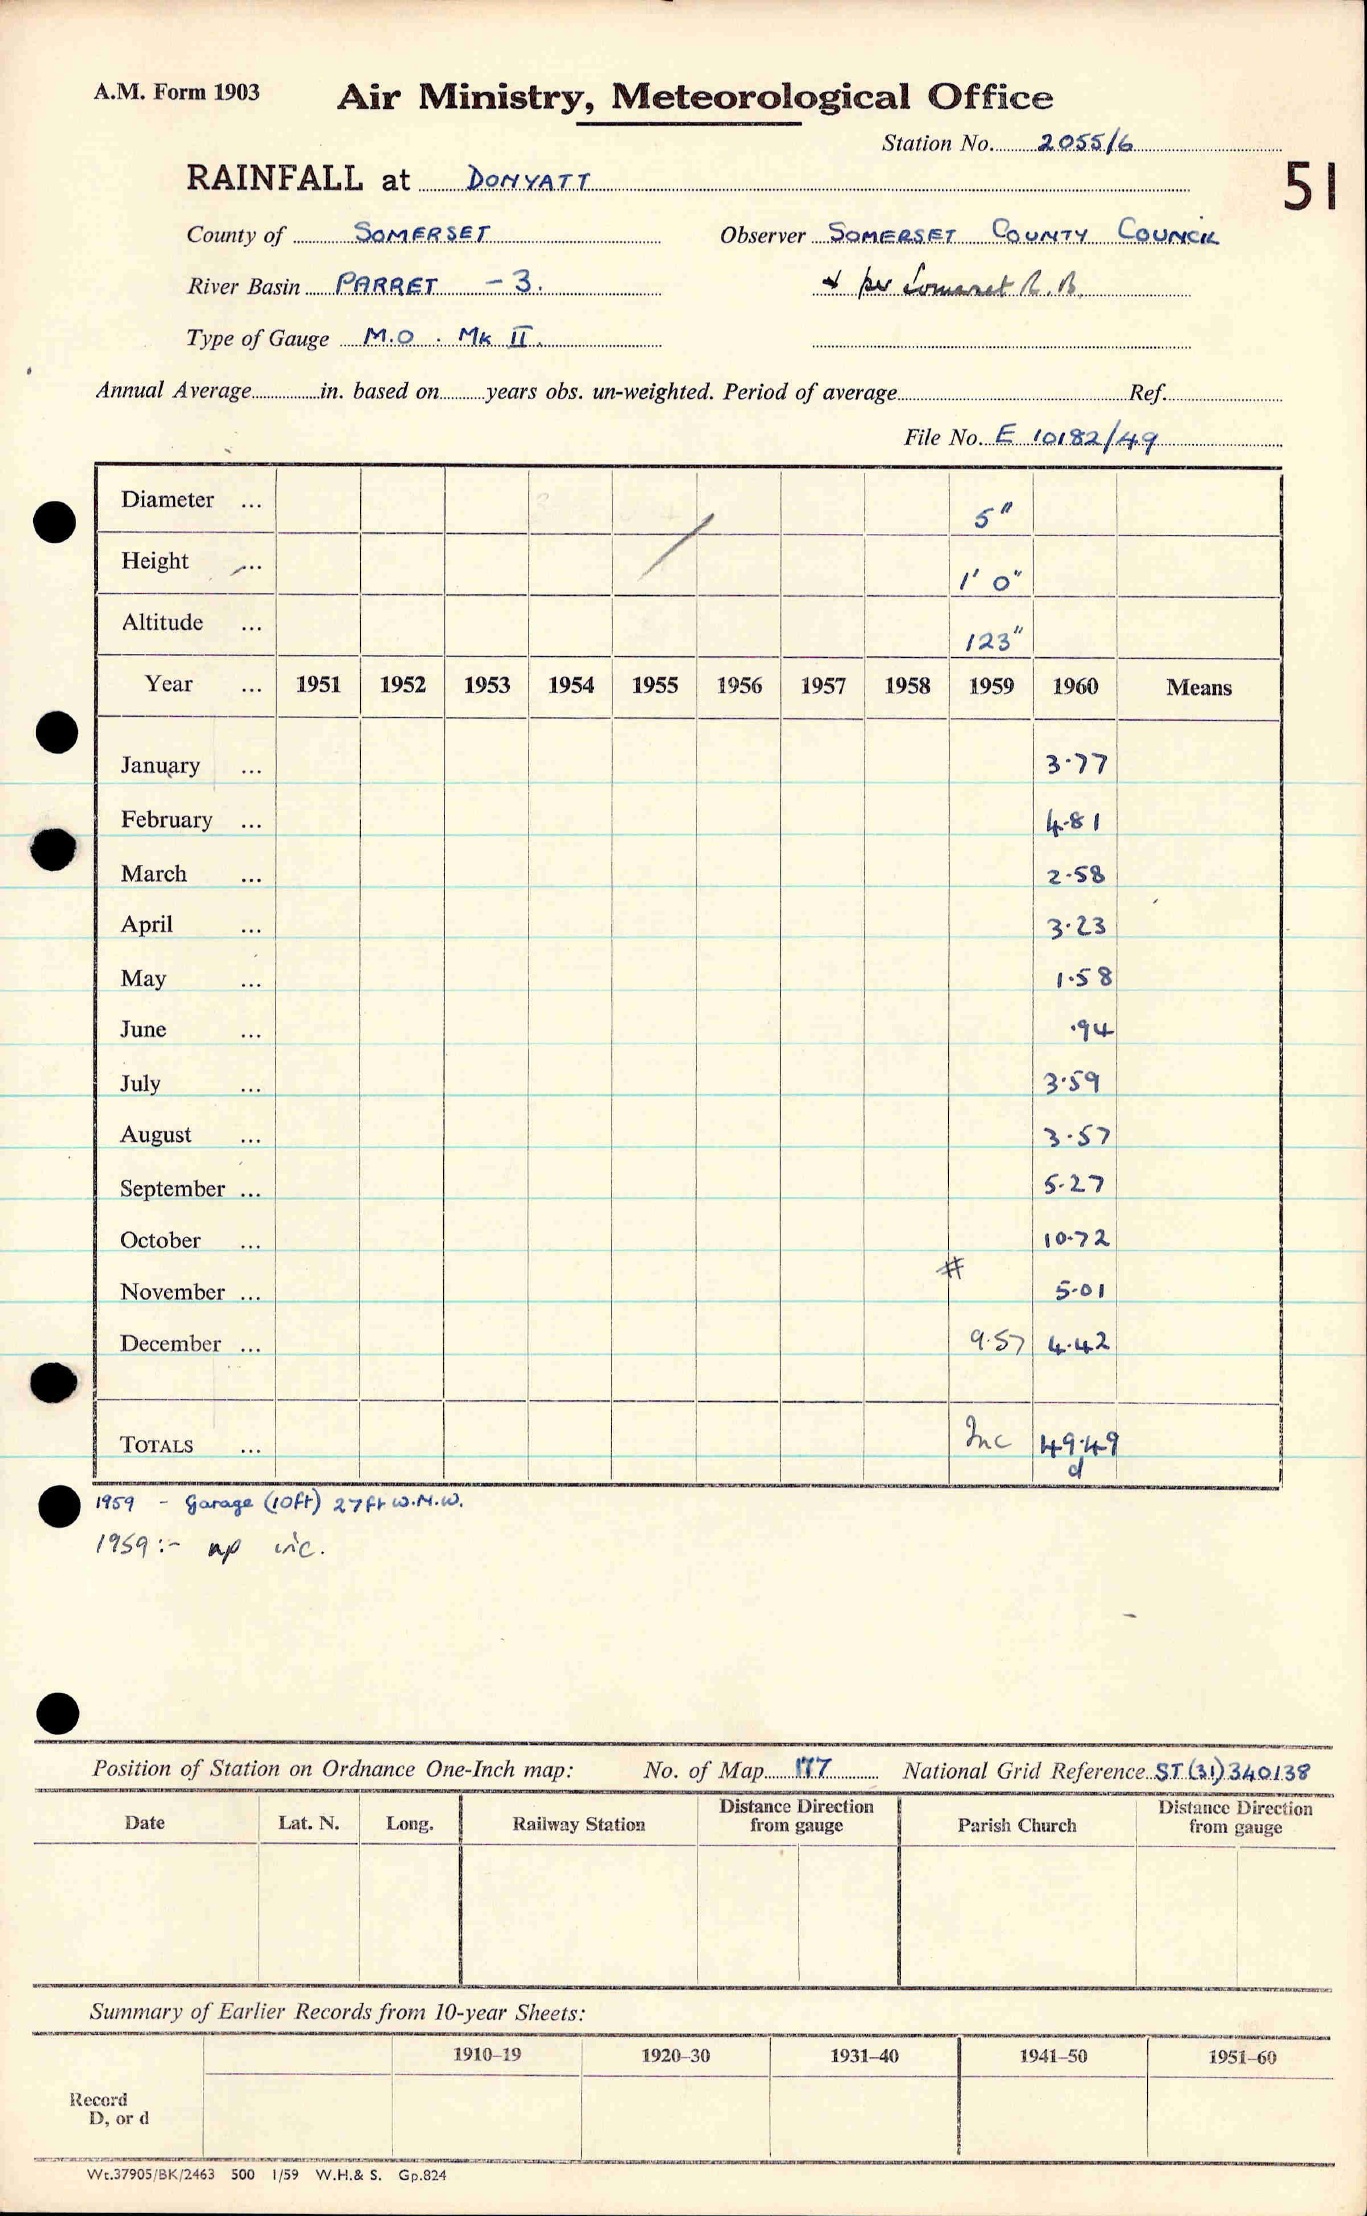 A.M. Form 1903
Air Ministry, Meteorological Office
Station No. 2055/6
51
RAINFALL at DONYATT
County of SOMERSET Observer SOMERSET COUNTY COUNCIL
River Basin PARRET - 3. & per Somerset R.B.
Type of Gauge M.O. Mk II.
Annual Average in. based on years obs. un-weighted. Period of average Ref.
File No. E 10182/49
Diameter ... 5"
Height ... 1' 0"
Altitude ... 123"
Year ... 1951 1952 1953 1954 1955 1956 1957 1958 1959 1960 Means
January ... 3.77
February ... 4.81
March ... 2.58
April ... 3.23
May ... 1.58
June ... .94
July ... 3.59
August ... 3.57
September ... 5.27
October ... 10.72
#
November ... 5.01
December ... 9.57 4.42
TOTALS ... Inc 49.49
d
1959 - Garage (10ft) 27ft W.N.W.
1959:- inc.
Position of Station on Ordnance One-Inch map: No. of Map 177 National Grid Reference ST (31) 340138
Date Lat. N. Long. Railway Station Distance Direction from gauge Parish Church Distance Direction from gauge
Summary of Earlier Records from 10-year Sheets:
1910–19 1920–30 1931–40 1941–50 1951–60
Record
D, or d
Wt.37905/BK/2463 500 1/59 W.H.& S. Gp.824